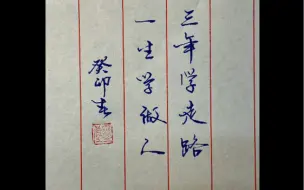 三年学走路
一生学做人
癸卯春